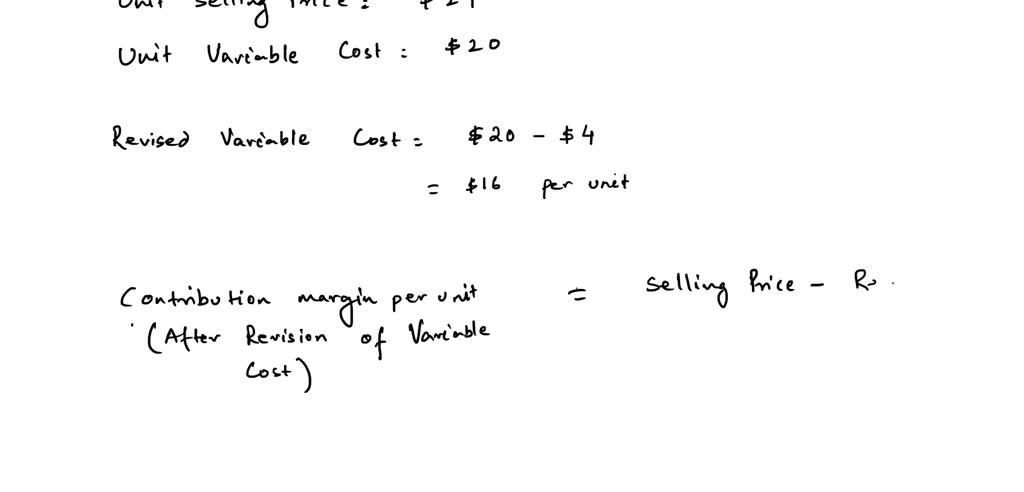 Unit Selling Price :
Unit Variable Cost : $20
Revised Variable Cost = $20 - $4
= $16 per unit
Contribution margin per unit = Selling Price - R
(After Revision of Variable
Cost)